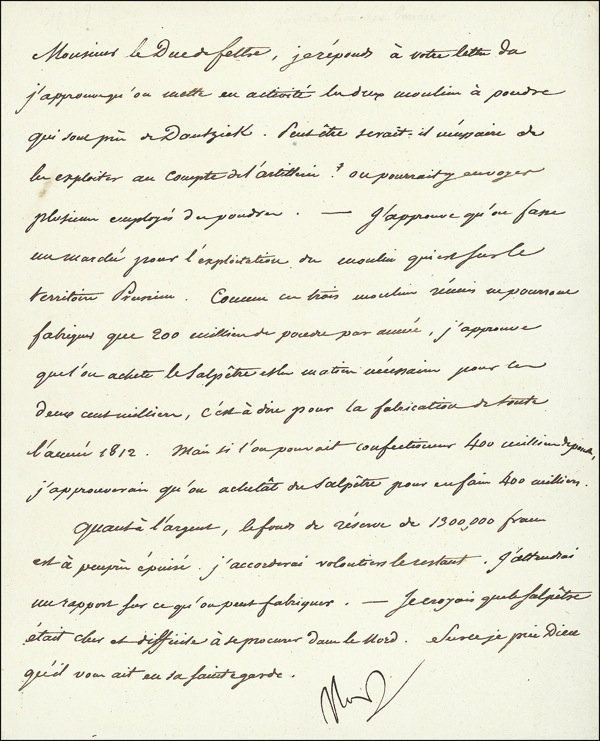 Monsieur le Duc de feltre, je réponds à votre lettre du
j'approuve qu'on mette en activité les deux moulin à poudre
qui sont près de Dantzick. Peut être serait-il nécessaire de
les exploiter au Compte de l'artillerie? on pourrait y envoyer
plusieurs employés des poudres. — J'approuve qu'on fasse
un marché pour l'exploitation du moulin qui est sur le
territoire Prussien. Comme ces trois moulin réunis ne pourront
fabriquer que 200 milliers de poudre par année, j'approuve
que l'on achete le Salpêtre et les matieres nécessaires pour ces
deux cent milliers, c'est à dire pour la fabrication de toute
l'année 1812. Mais si l'on pouvait confectionner 400 milliers de poudre,
j'approuverais qu'on achetât du Salpêtre pour en faire 400 milliers.
Quant à l'argent, le fonds de réserve de 1300,000 francs
est à peuprès épuisé. j'accorderai volontiers le restant. J'attendrai
un rapport sur ce qu'on peut fabriquer. — Je croyais que le Salpêtre
était cher et difficile à se procurer dans le Nord. Sur ce je prie Dieu
qu'il vous ait en sa sainte garde.